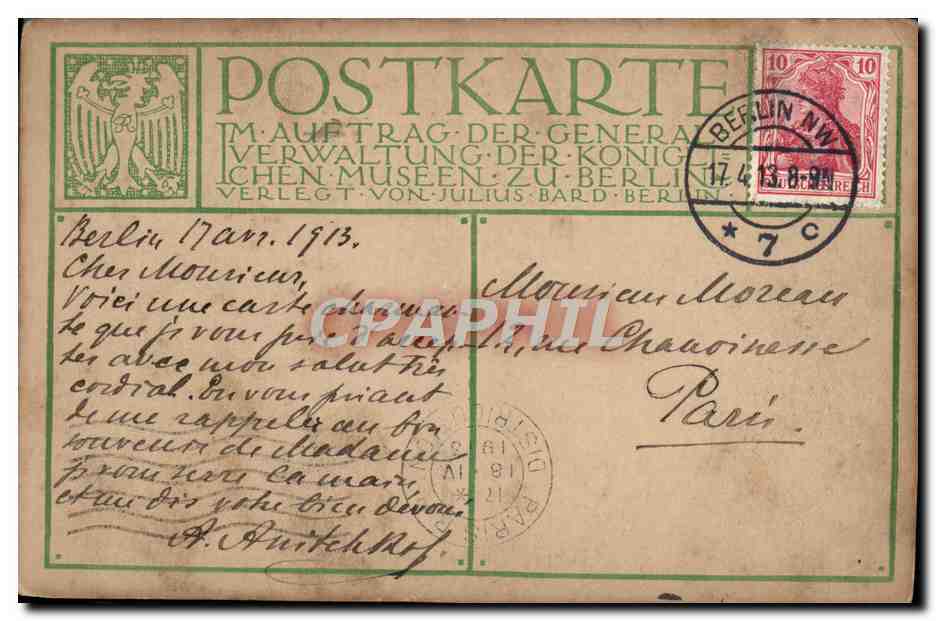 POSTKARTE
IM · AUFTRAG · DER · GENERAL
VERWALTUNG · DER · KÖNIG =
LICHEN · MUSEEN · ZU · BERLIN
VERLEGT · VON · JULIUS · BARD · BERLIN
10 10
DEUTSCHES REICH
BERLIN NW
17.4.13.8-9N
* 7 C
Berlin 17 avr. 1913.
Cher Monsieur,
Voici une carte charman-
te que je vous prie d'accep-
ter avec mon salut très
cordial. En vous priant
de me rappeler au bon
souvenir de Madame
je vous serre la main
et me dis votre bien dévoué
A. Anitchkof.
Monsieur Moreau
17, rue Chanoinesse
Paris.
CPAPHIL
PARIS
DISTRIBUTION
17 *
18 IV
19